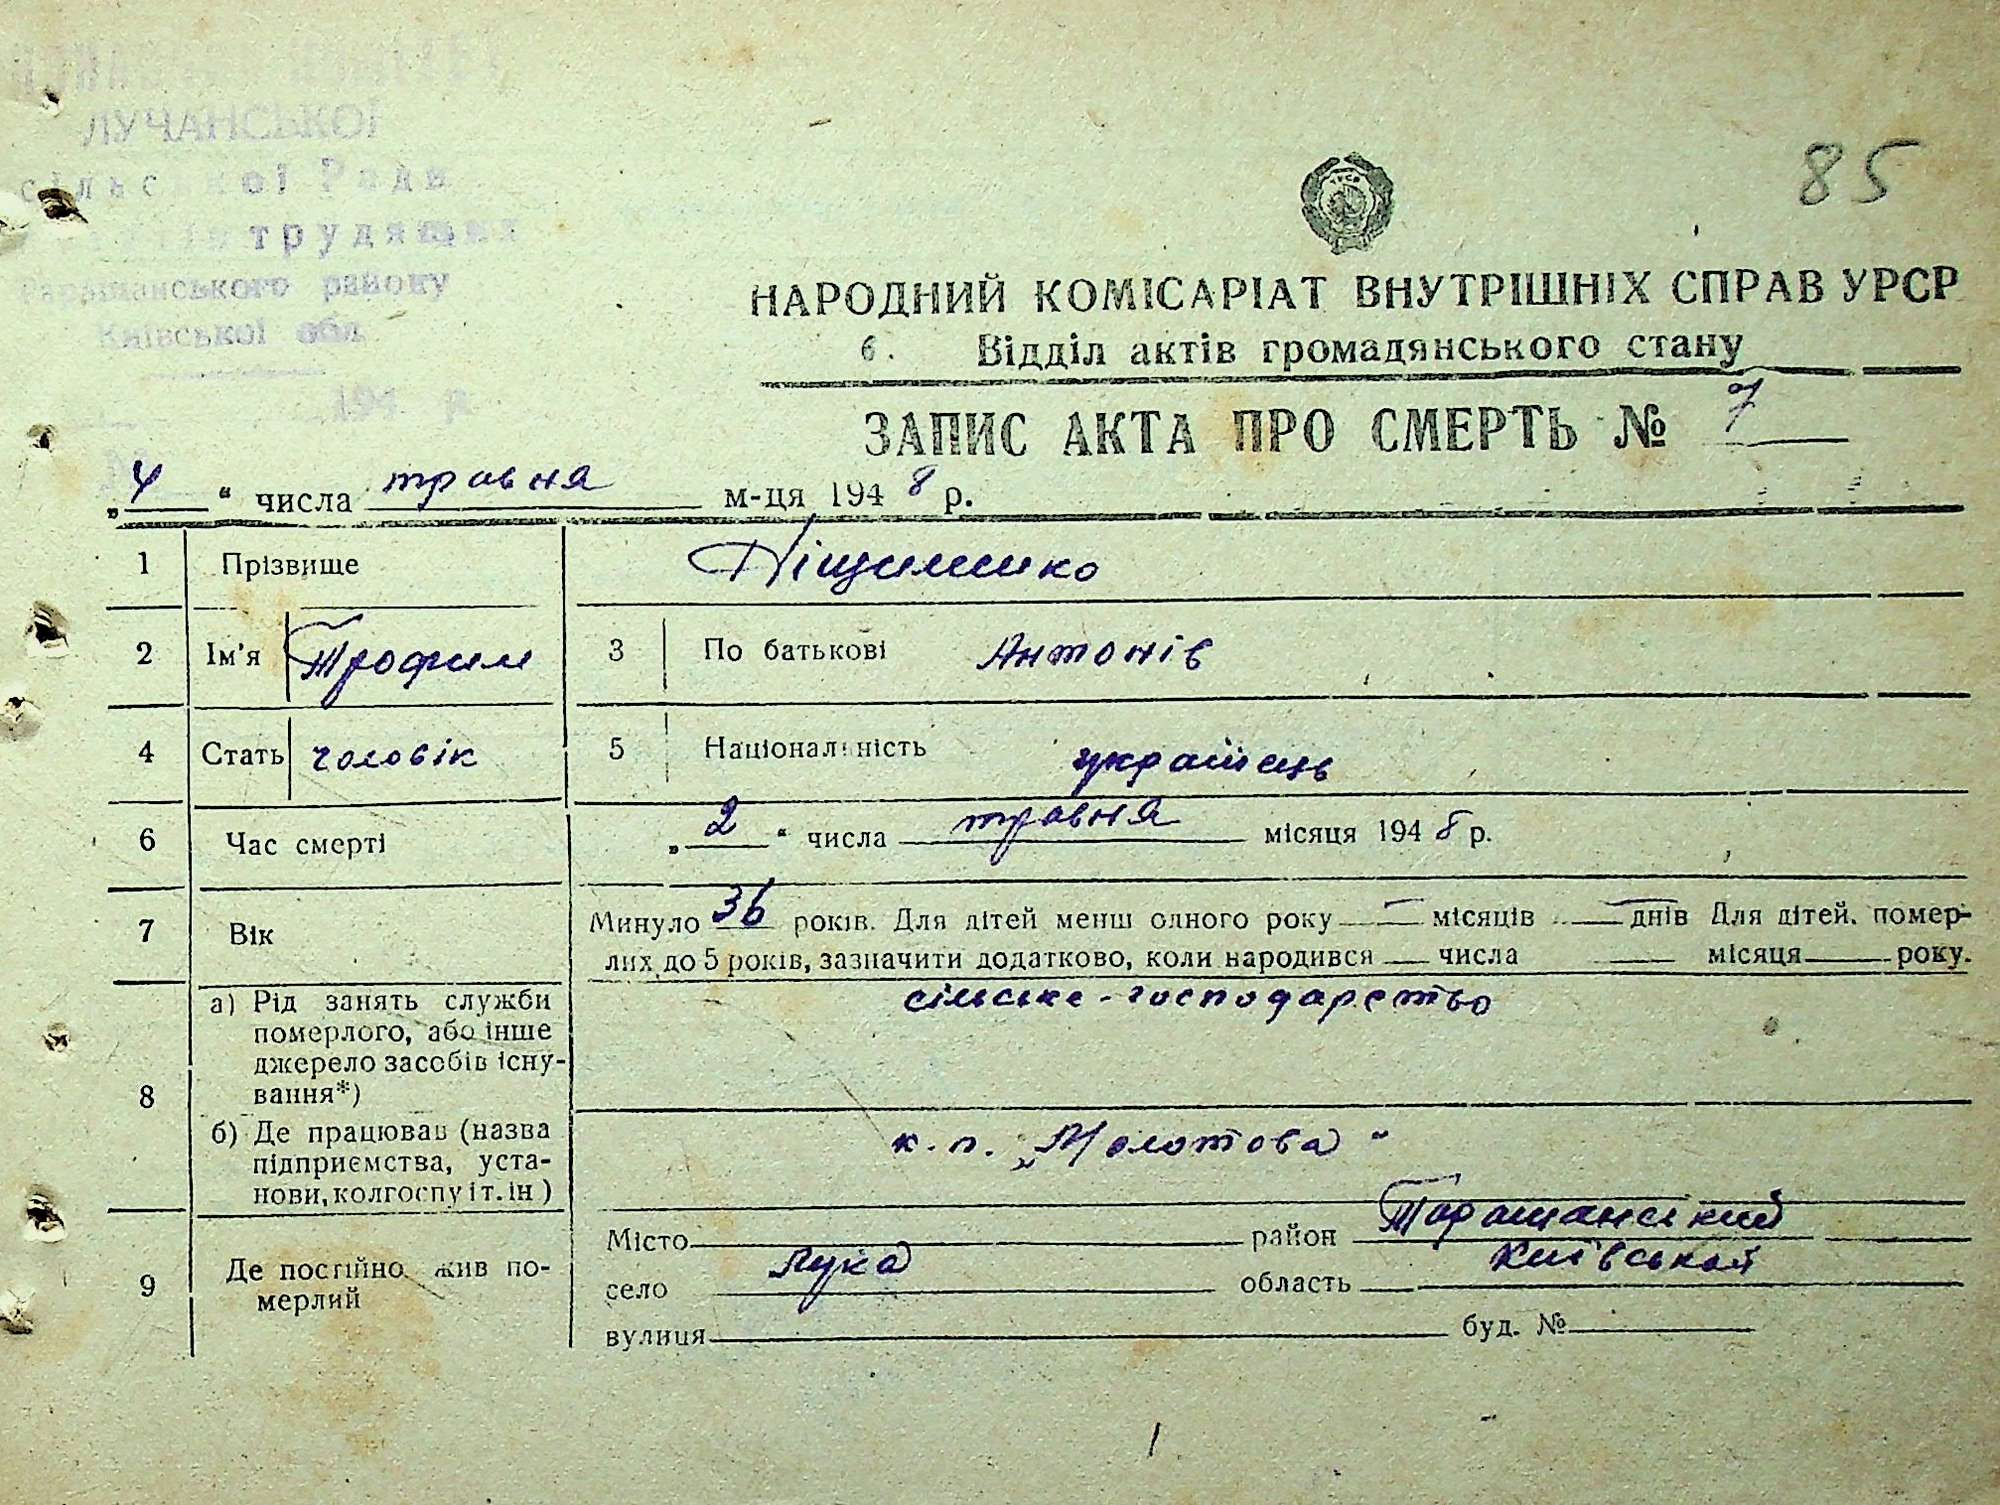 ЛУЧАНСЬКОЇ
сільської Ради
трудящих
Таращанського району
Київської обл.
194 р.
85
УРСР
НАРОДНИЙ КОМІСАРІАТ ВНУТРІШНІХ СПРАВ УРСР
6. Відділ актів громадянського стану
ЗАПИС АКТА ПРО СМЕРТЬ № 7
„4“ числа травня м-ця 1948 р.
1 Прізвище
2 Ім'я Трофим 3 По батькові Антонів
4 Стать чоловік 5 Національність українець
6 Час смерті „2“ числа травня місяця 1948 р.
7 Вік Минуло 36 років. Для дітей менш одного року — місяців — днів Для дітей, помер-
лих до 5 років, зазначити додатково, коли народився — числа — місяця — року.
8 а) Рід занять служби
померлого, або інше
джерело засобів існу-
вання*)
сільське-господарство
б) Де працював (назва
підприємства, уста-
нови, колгоспу і т. ін)
к.п. „Молотова“
9 Де постійно жив по-
мерлий
Місто район Таращанський
село Лука область Київської
вулиця буд. №